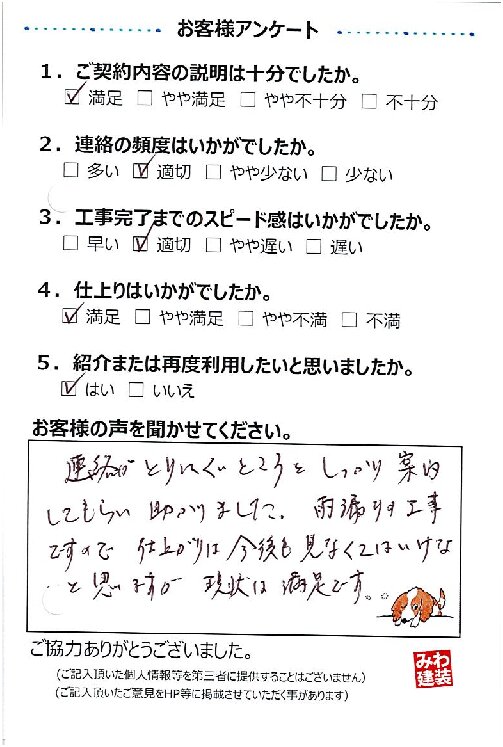 お客様アンケート
1．ご契約内容の説明は十分でしたか。
☑ 満足 □ やや満足 □ やや不十分 □ 不十分
2．連絡の頻度はいかがでしたか。
□ 多い ☑ 適切 □ やや少ない □ 少ない
3．工事完了までのスピード感はいかがでしたか。
□ 早い ☑ 適切 □ やや遅い □ 遅い
4．仕上りはいかがでしたか。
☑ 満足 □ やや満足 □ やや不満 □ 不満
5．紹介または再度利用したいと思いましたか。
☑ はい □ いいえ
お客様の声を聞かせてください。
連絡がとりにくいところをしっかり案内
してもらい助かりました。雨漏りの工事
ですので仕上がりは今後も見なくてはいけな
いと思いますが現状は満足です。
ご協力ありがとうございました。
(ご記入頂いた個人情報等を第三者に提供することはございません)
(ご記入頂いたご意見をHP等に掲載させていただく事があります)
みわ
建装